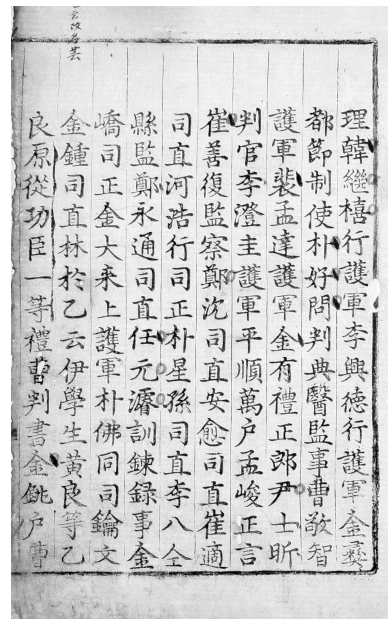 理韓繼禧行護軍李興德行護軍金彛
都節制使朴好問判典醫監事曹敬智
護軍裴孟達護軍金有禮正郎尹士昕
判官李澄主護軍平順萬户孟峻正言
崔善復監察鄭沈司直安愈司直崔適
司直河浩行司正朴星孫司直李八仝
縣監鄭永通司直任元濬訓鍊録事金
嶠司正金大來上護軍朴佛同司鑰文
金鍾司直林於乙云伊學生黃良等乙
良原從功臣一等禮曹判書金銚户曹
云改名芸